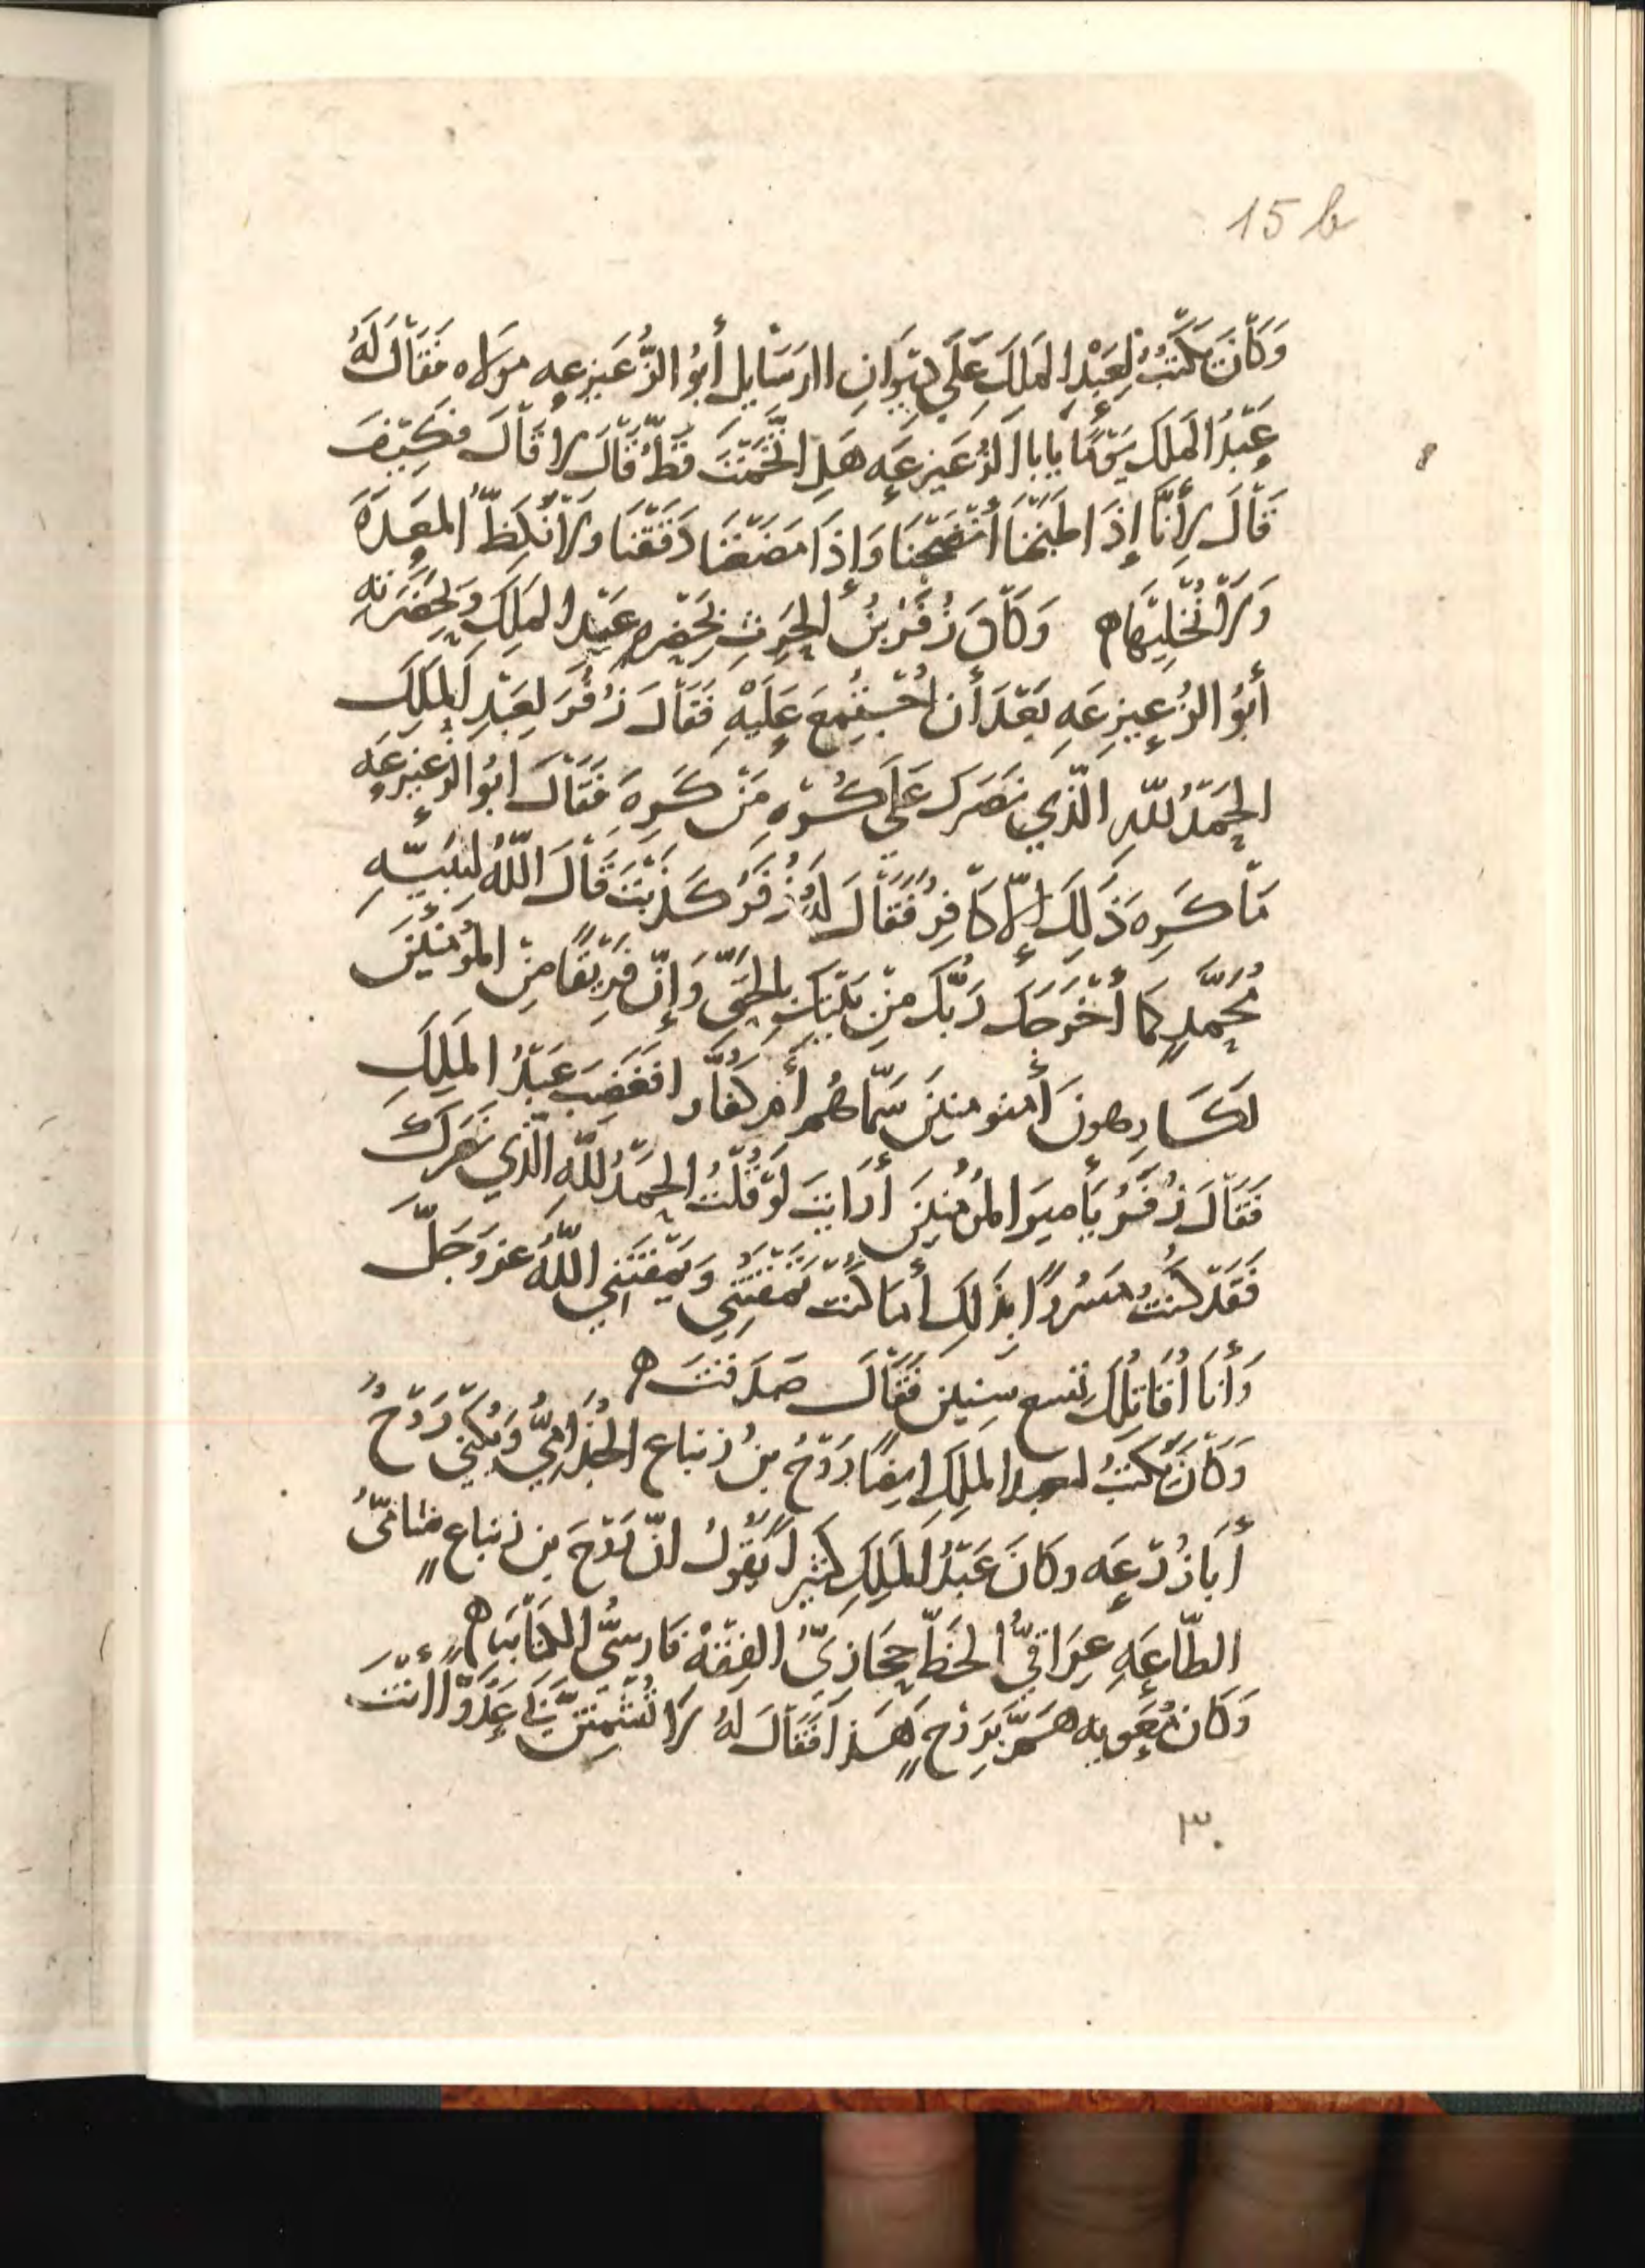 15 b
وَكَانَ يَكْتُبُ لِعَبْدِ المَلَكَ عَلَي دِيْوَانِ الرَسَايلِ أَبُو الزُّعَيزِعِه مَوَلاه فَقَالَ لَهُ
عَبْدُ المَلَكَ يَوْمًا يابا الزُعَيزِعَه هَلِ اتَّخَمْتَ قَطُّ قَالَ لا قَالَ فَكَيْفَ
قَالَ لِأَنَّا إِذَا طَبَخْنَا أَنْضَجْنَا وَإِذَا مَضَغْنَا دَقَقْنَا وَلَا نُكِظُّ المَعِدَهَ
وَلَا نُخْلِيْهَا ه وَكَانَ زُفَرُ بْنُ الحِرِثِ بِحَضْرِهِ عَبْدِ المَلِكِ وَبِحَضْرَتِهِ
أَبُو الزُعيزِعَهِ بَعْدَ أَن اجْتُمِعَ عَلَيْهِ فَقَالَ زُفَرَ لِعَبْدِ المَلِكَ
الحَمْدُ للّهِ الَّذِي نَصَرَكَ عَلَى كُرْهِ مَنْ كَرِهَ فَقَالَ ابُو الزُعَيزِعَهِ
مَا كَرِهَ ذَلِكَ إِلّا كَافِرُ فَقَالَ لَهُ زُفَرُ كَذَبْتَ قَالَ اللّهُ لِنَبِيِّهِ
مُحَمَّدٍ كَمَا أَخْرَجَكَ رَبُّكَ مِنْ بَيْتِكَ بِالحَقِّ وَإِنَّ فَرِيْقًا مِنْ المُؤْمِنِيْنَ
لَكَارِهونَ أَمنو منِينَ سَمَّاهُم أَم كُفَّارا فَغَضِبَ عَبْدُ المَلِكِ
فَقَالَ زُفَرُ يَأَميرَ المُؤْمِنينَ أَرَايتَ لَوْ قُلْتُ الحَمْدُ للّهِ الَّذِي نَصَرَكَ
فَقَدْ كُنْتُ مَسْرُورًا بِذَلِكَ أَمَا كُنْتَ تَمْقُتُنِي وَيَمْقُتُنِي اللّهُ عز وَجَلَّ
وَأَنَا أُقَاتِلُكَ تسع سِنِين فَقَالَ صَدَقْتَ ه
وَكَانَ يَكْتُبُ لعبد المَلِكِ ايضًا رَوْحُ بنُ زنباع الجُذَامِيُّ وَيُكْنِي رَوْحٌ
أَبَا زُرْعَه وكَانَ عَبْدُ المَلِكِ كَثِيرًا يَقُوُلُ انّ رَوْحَ بن زنباع شامِيُّ
الطّاعَةِ عِرَاقِيُّ الخَطِّ حِجَازِيُّ الفِقْهْ فَارِسيُّ الكِتَابَه ه
وَكَانَ مُعَويه هَمَّ بَرَوْحٍ هَذَا فَقَالَ لَهُ لا تُشْمِتَنَّ بِي عَدُوًّا أَنْتَ
٣٠